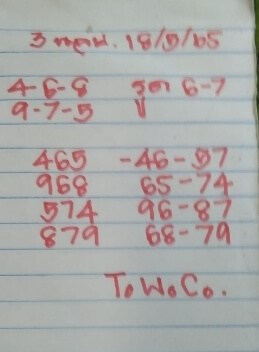 3 ตลาด. 18/5/65
4-6-8 รูด 6-7
9-7-5
465 -46-57
968 65-74
574 96-87
879 68-79
T.W.Co.